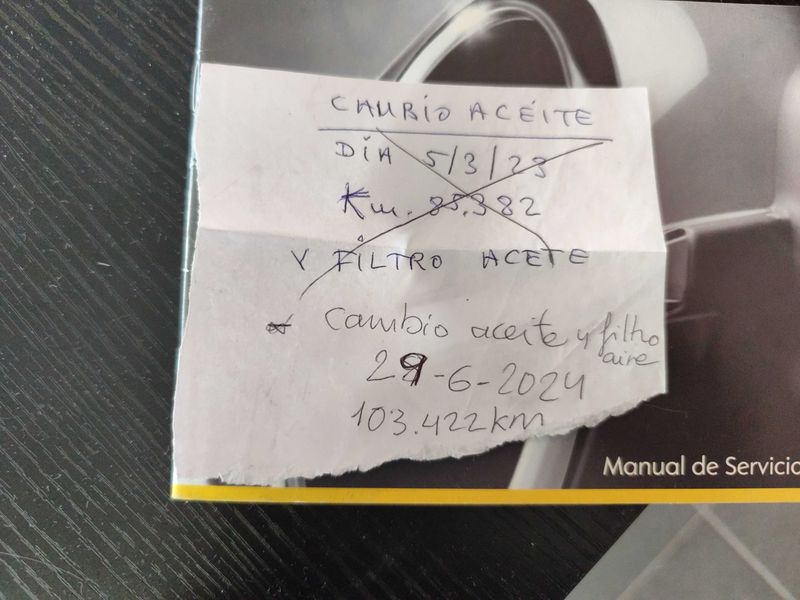 CAMBIO ACEITE
DÍA 5/3/23
Km. 85.382
Y FILTRO ACETE
* cambio aceite y filtro
aire
29-6-2024
103.422 km
Manual de Servicio